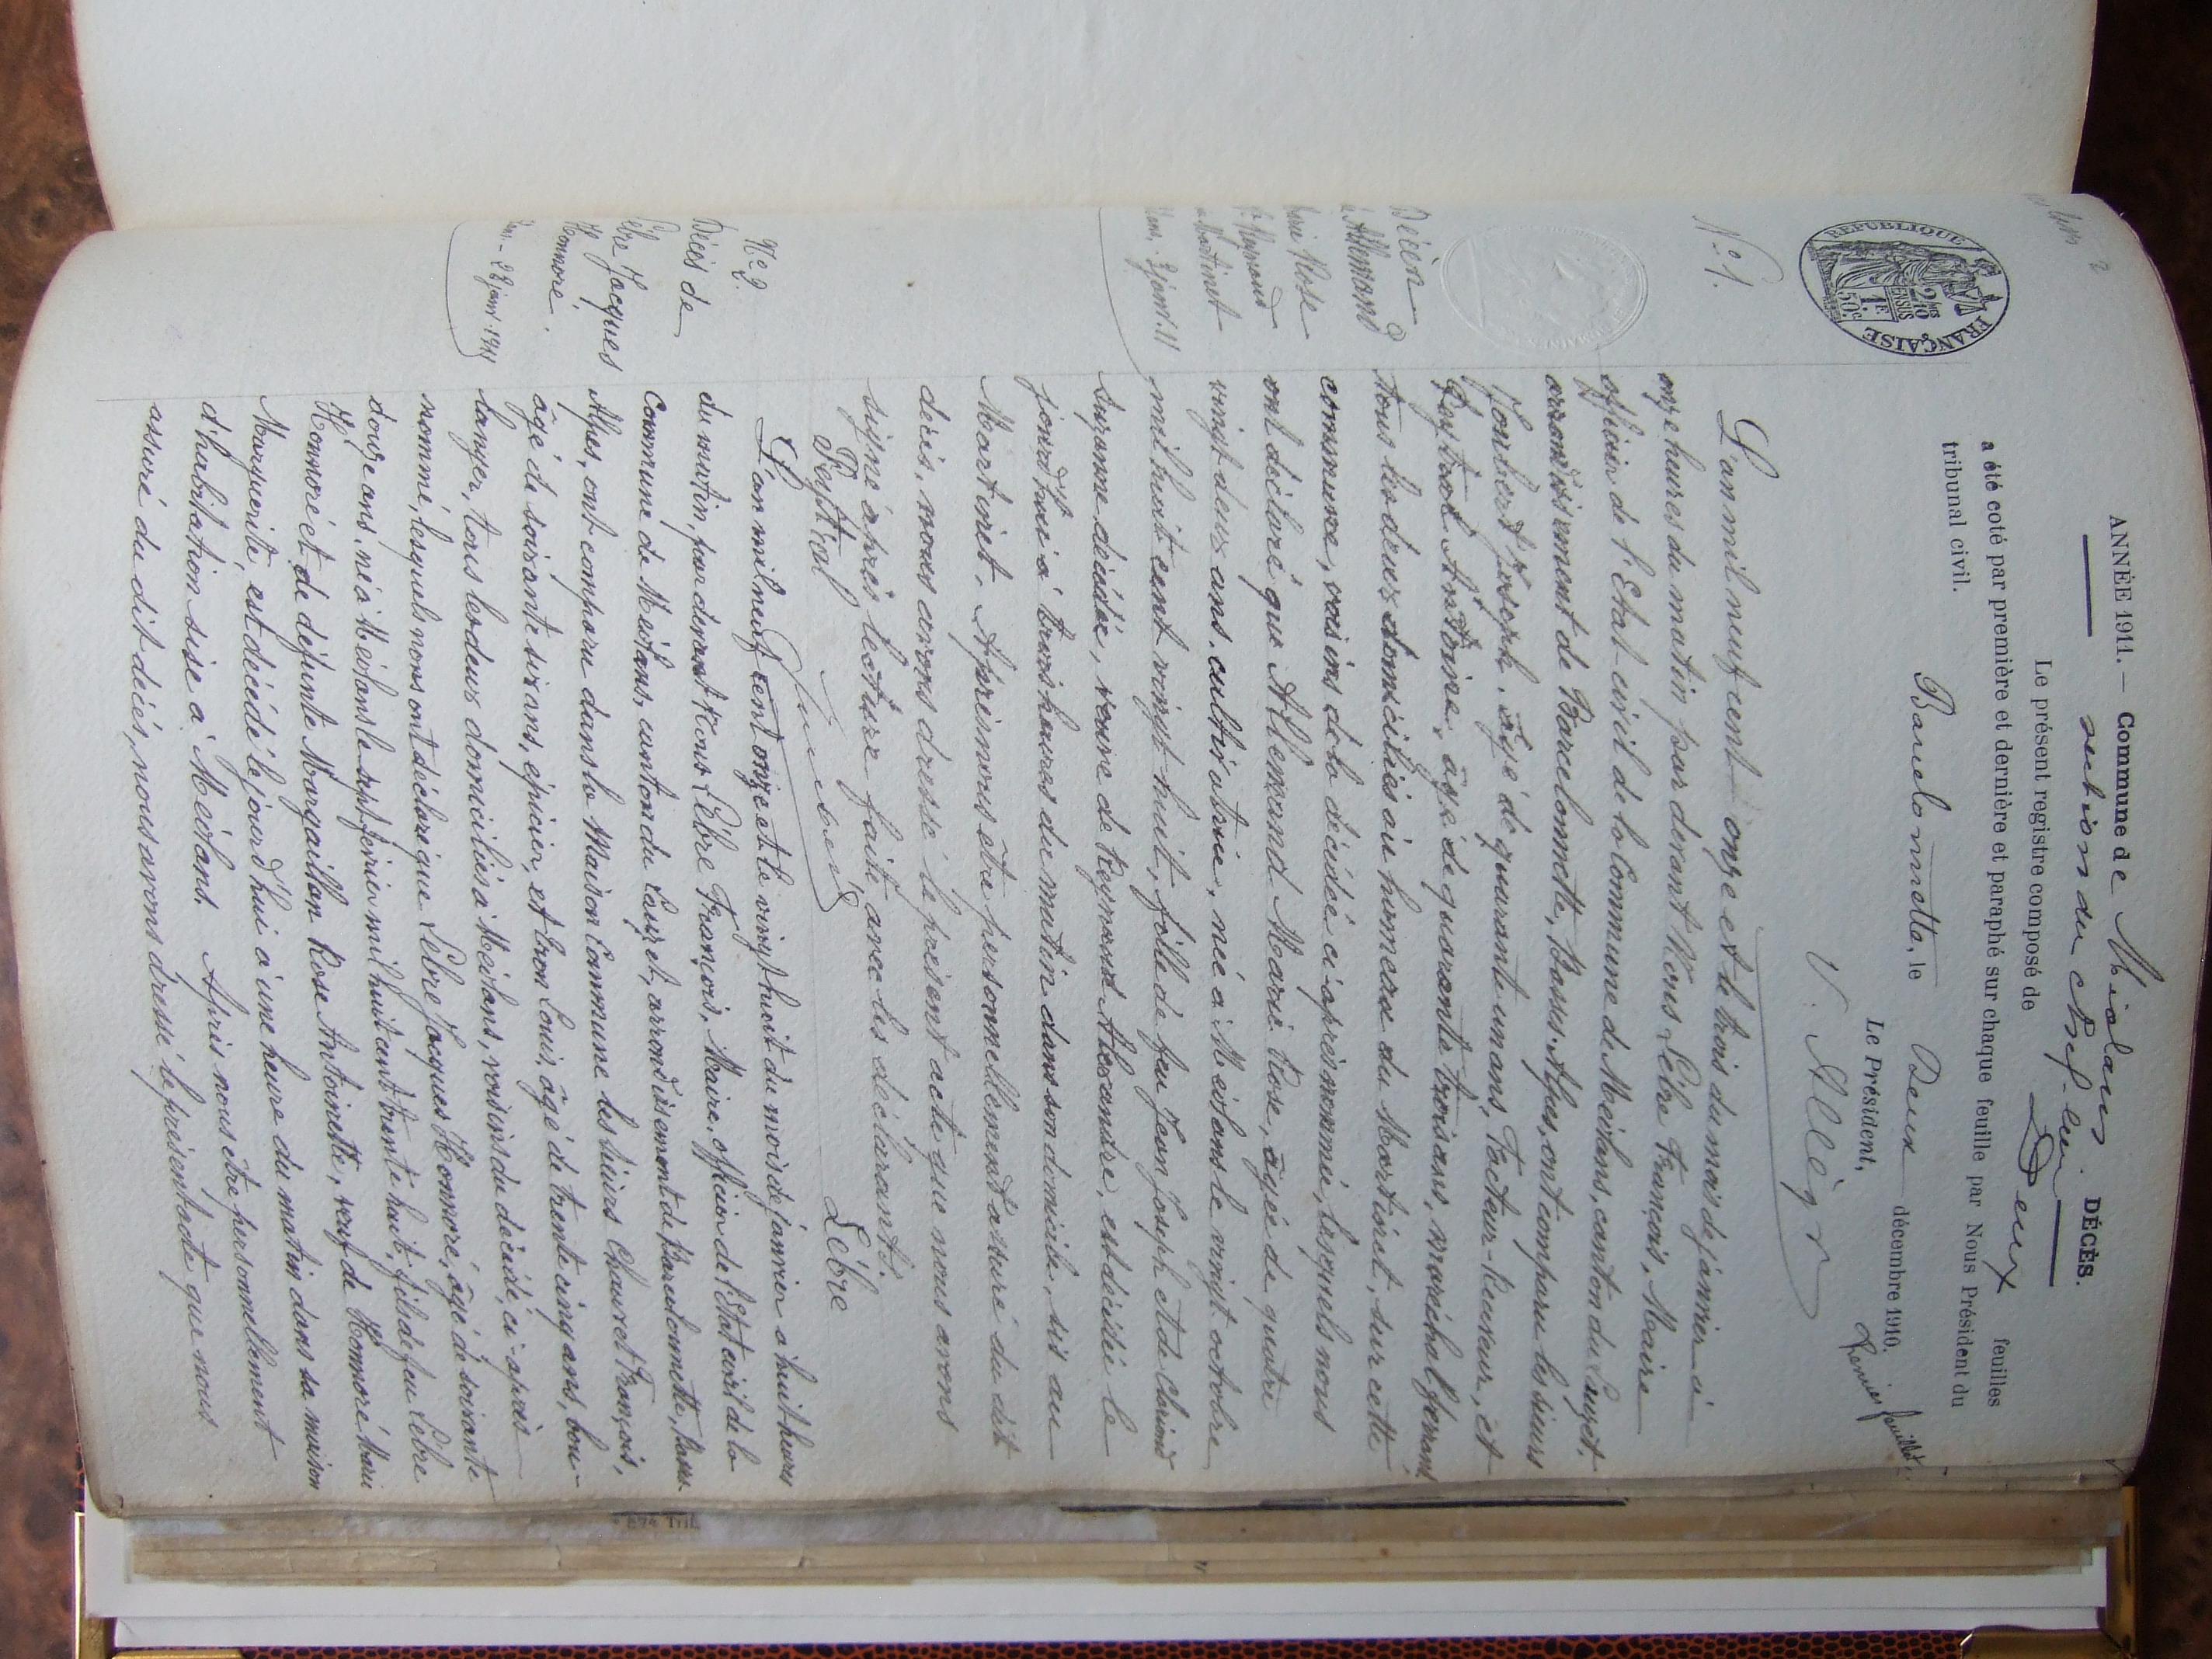 ANNÉE 1911. — Commune de Méolans DÉCÈS.
section du chef lieu
Le présent registre composé de Deux feuilles
a été coté par première et dernière et paraphé sur chaque feuille par Nous Président du
tribunal civil.
Barcelonnette, le Deux décembre 1910.
Le Président,
Dernier feuillet
V. Allègr
RÉPUBLIQUE FRANÇAISE
2/10 EN SUS
1F 50c
N° 1.
Décès
Allemand
Marie Rose
Vve Reynaud
Martinet
3 janv. 11
L'an mil neuf cent onze et le trois du mois de janvier à
onze heures du matin par devant Nous Lèbre François, Maire
officier de l'Etat-civil de la Commune de Méolans, canton du Lauzet,
arrondissement de Barcelonnette, Basses-Alpes, ont comparu les sieurs
Joubert Joseph, âgé de quarante un ans, facteur-receveur, et
Peyttral Antoine, âgé de quarante trois ans, maréchal ferrant
tous les deux domiciliés au hameau du Martinet, sur cette
commune, voisins de la décédée ci-après nommée, lesquels nous
ont déclaré que Allemand Marie Rose, âgée de quatre
vingt deux ans, cultivatrice, née à Méolans le vingt octobre
mil huit cent vingt huit, fille de feu Jean Joseph et de Clariond
Suzanne décédée, veuve de Reynaud Alexandre, est décédée le
jourd'hui à trois heures du matin dans son domicile, sis au
Martinet. Après nous être personnellement assuré du dit
décès, nous avons dressé le présent acte que nous avons
signé après lecture faite avec les déclarants.
Peyttral Lèbre
N° 2.
Décès de
Lèbre Jacques
Honnoré.
28 janv. 1911
L'an mil neuf cent onze et le vingt huit du mois de janvier à huit heures
du matin, par devant Nous Lèbre François, Maire, officier de l'Etat civil de la
Commune de Méolans, canton du Lauzet, arrondissement de Barcelonnette, Basses-
Alpes, ont comparu dans la Maison Commune les sieurs Chauvet François,
âgé de soixante six ans, épicier, et Tron Louis, âgé de trente cinq ans, bou-
langer, tous les deux domiciliés à Méolans, voisins du décédé, ci-après
nommé, lesquels nous ont déclaré que Lèbre Jacques Honnoré, âgé de soixante
douze ans, né à Méolans le sept février mil huit cent trente huit, fils de feu Lèbre
Honnoré et de défunte Margaillan Rose Antoinette, veuf de Honnoré Marie
Marguerite, est décédé le jourd'hui à une heure du matin dans sa maison
d'habitation sise à Méolans. Après nous être personnellement
assuré du dit décès, nous avons dressé le présent acte que nous